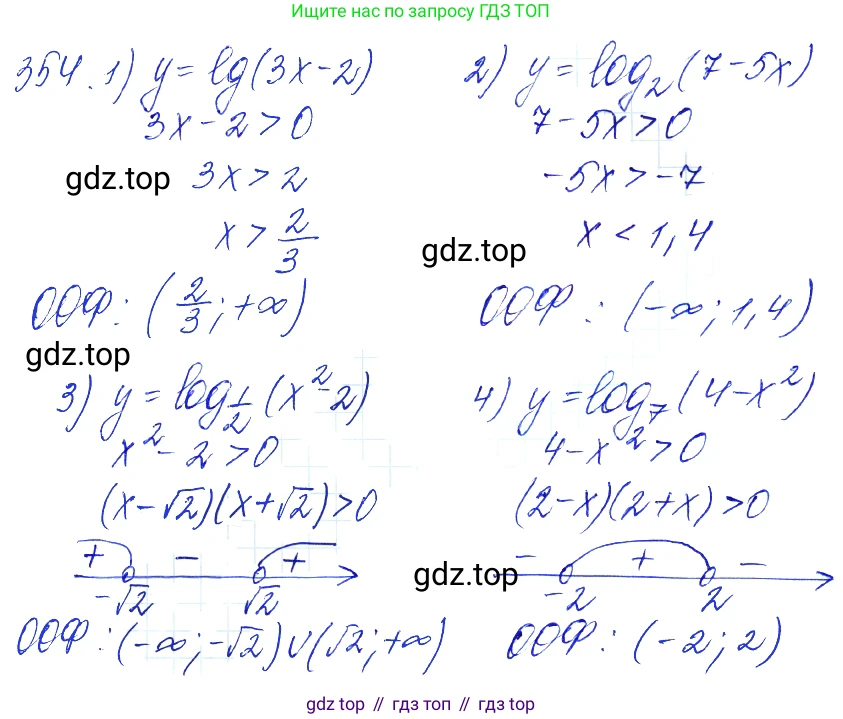 Ищите нас по запросу ГДЗ ТОП
354. 1) y = lg(3x-2)
3x - 2 > 0
3x > 2
x > 2/3
ООФ: (2/3; +∞)
2) y = log₂(7-5x)
7 - 5x > 0
-5x > -7
x < 1,4
ООФ: (-∞; 1,4)
gdz.top
gdz.top
gdz.top
3) y = log_{1/2}(x²-2)
x² - 2 > 0
(x-√2)(x+√2) > 0
+ - +
-√2 √2
ООФ: (-∞; -√2) ∪ (√2; +∞)
4) y = log₇(4-x²)
4 - x² > 0
(2-x)(2+x) > 0
- + -
-2 2
gdz.top
ООФ: (-2; 2)
gdz top // гдз топ // gdz top // гдз топ